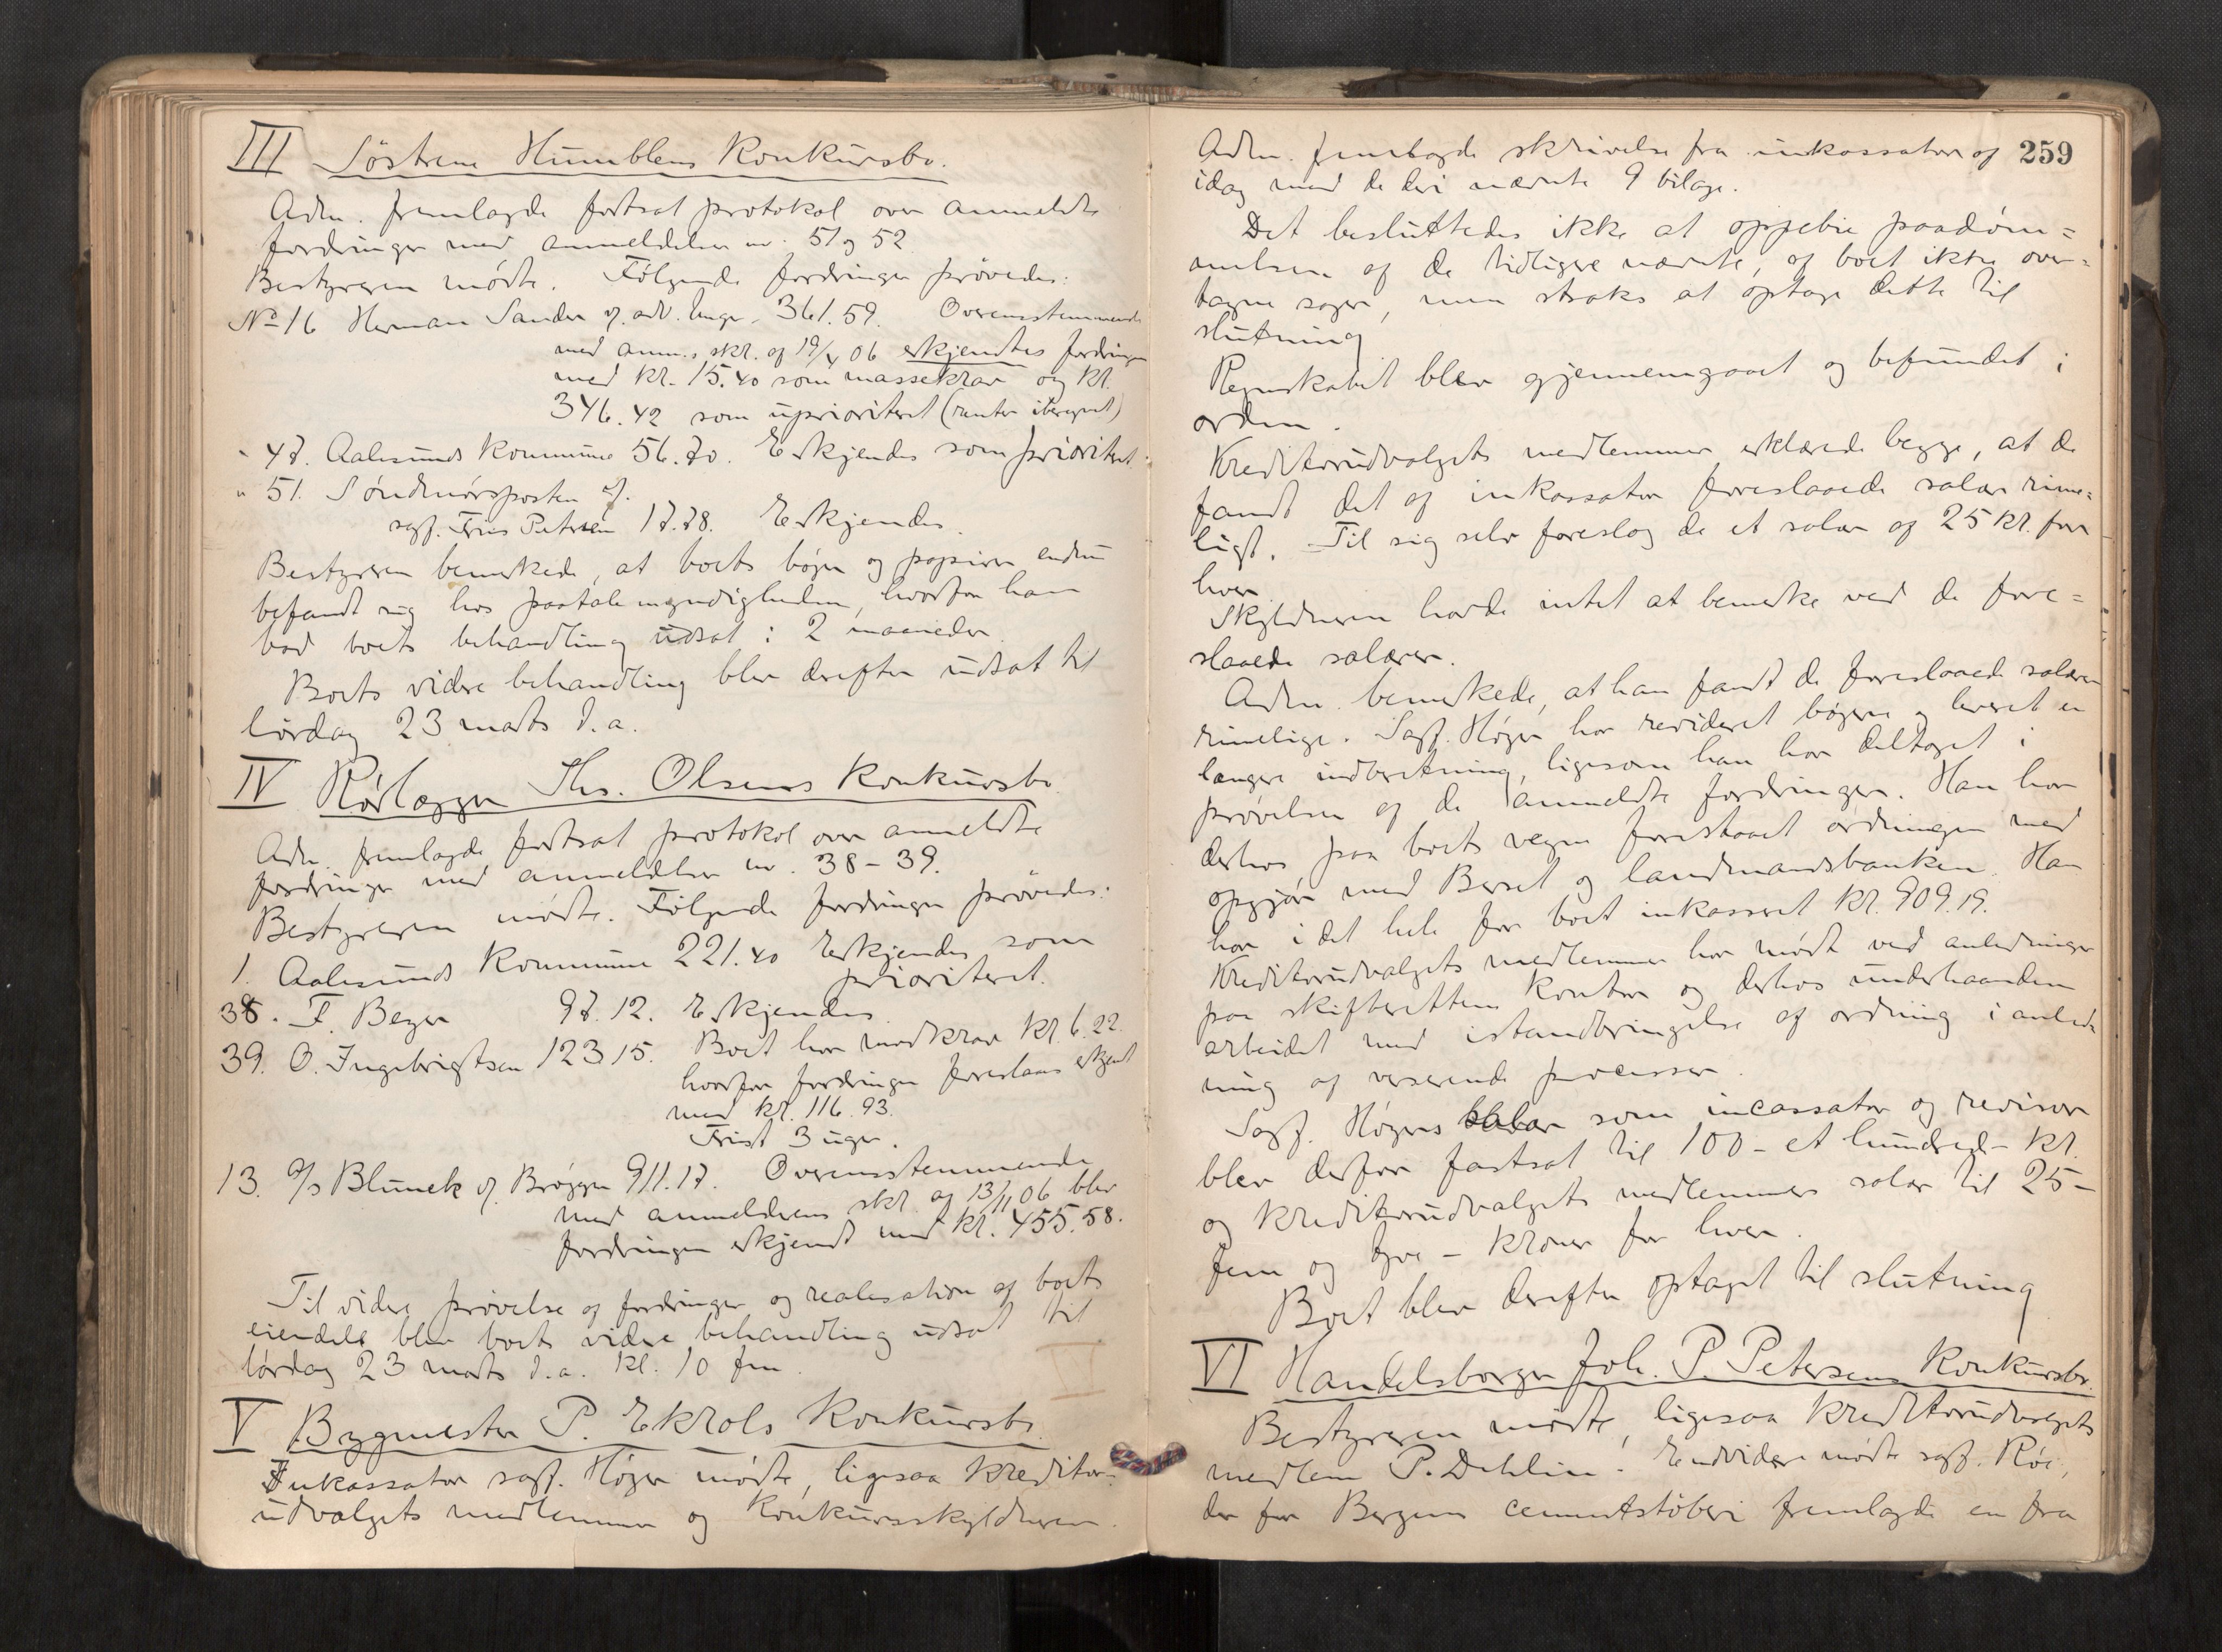 III Søstrene Humblens Konkursbo.
Adm. fremlagde fortsat protokol over anmeldte
fordringer med anmeldelser nr. 51 og 52
Bestyreren mødte. Følgende fordringer prøvedes:
No 16 Herman Sander v. adv. 361.59. Overensstemmende
med anm.s skr. af 19/ 06 erkjendtes fordringen
med kr. 15.40 som massekrav og kr.
346.42 som uprioriteret (renter iberegnet)
" 47. Aalesunds kommune 56.70. Erkjendes som prioriteret
" 51. Søndmørsposten v/.
sagf. Friis Petersen 17.78. Erkjendes.
Bestyreren bemerkede, at boets bøger og papirer endnu
befandt sig hos paatalemyndigheden, hvorfor han
bad boets behandling udsat i 2 maaneder.
Boets videre behandling blev derefter udsat til
lørdag 23 marts d.a.
IV Rørlægger Ths. Olsens Konkursbo.
Adm. fremlagde fortsat protokol over anmeldte
fordringer med anmeldelser nr. 38-39.
Bestyreren mødte. Følgende fordringer prøvedes:
1. Aalesunds kommune 221.40 Erkjendes som
prioriteret.
38. F. Beyer 97.12. Erkjendes.
39. O. Ingebrigtsen 123.15. Boet har modkrav kr. 6.22.
hvorfor fordringen foreslaaes erkjent
med kr. 116.93.
Frist 3 uger.
13. A/S Blunck v. Brøgger 911.17. Overensstemmende
med anmelderens skr. af 13/11 06 blev
fordringen erkjendt med kr. 455.58.
Til videre prøvelse af fordringer og realisation af boets
eiendele blev boets videre behandling udsat til
lørdag 23 marts d.a. kl. 10 fm.
V Bygmester P. Ekrols Konkursbo.
Inkassator sagf. Høyer mødte, ligesaa kreditor-
udvalgets medlemmer og konkursskyldneren.
259
Adm. fremlagde skrivelse fra inkassator af
idag med de deri nævnte 9 bilage.
Det besluttedes ikke at oppebie paadøm=
melsen af de tidligere nævnte, af boet ikke over=
tagne sager, men straks at optage dette til
slutning
Regnskabet blev gjennemgaaet og befundet i
orden.
Kreditorudvalgets medlemmer erklærede begge, at de
fandt det af inkassator foreslaaede salær rime=
ligt. Til sig selv foreslog de et salær af 25 kr. for
hver.
Skyldneren havde intet at bemerke ved de fore=
slaaede salærer.
Adm. bemerkede, at han fandt de foreslaaede salærer
rimelige. Sagf. Høyer har revideret bøgerne og leveret en
længere indberetning, ligesom han har deltaget i
prøvelsen af de anmeldte fordringer. Han har
derhos paa boets vegne forestaaet ordningen med
opgjør med Berset og landmandsbanken. Han
har i det hele for boet inkasseret kr. 909.19.
Kreditorudvalgets medlemmer har mødt ved anledninger
paa skifterettens kontor og derhos underhaanden
arbeidet med istandbringelse af ordning i anled-
ning af verserende processer.
Sagf. Høyers salær som incassator og revisor
blev derfor fastsat til 100 - et hundred - kr.
og kreditorudvalgets medlemmers salær til 25 -
fem og tyve - kroner for hver.
Boet blev derefter optaget til slutning
VI Handelsborger Joh. P. Petersens Konkursbo.
Bestyreren mødte, ligesaa kreditorudvalgets
medlem P. Dehlin. Endvidere mødte sagf. Røe,
der for Bergens cementstøberi fremlagde en fra